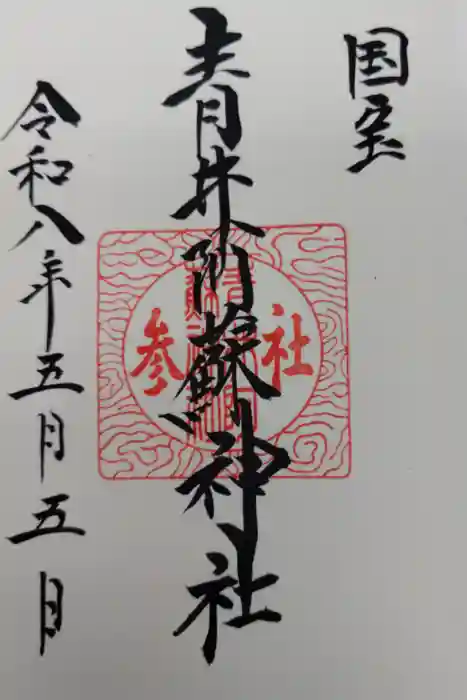 国宝
青井阿蘇神社
社参
令和八年五月五日